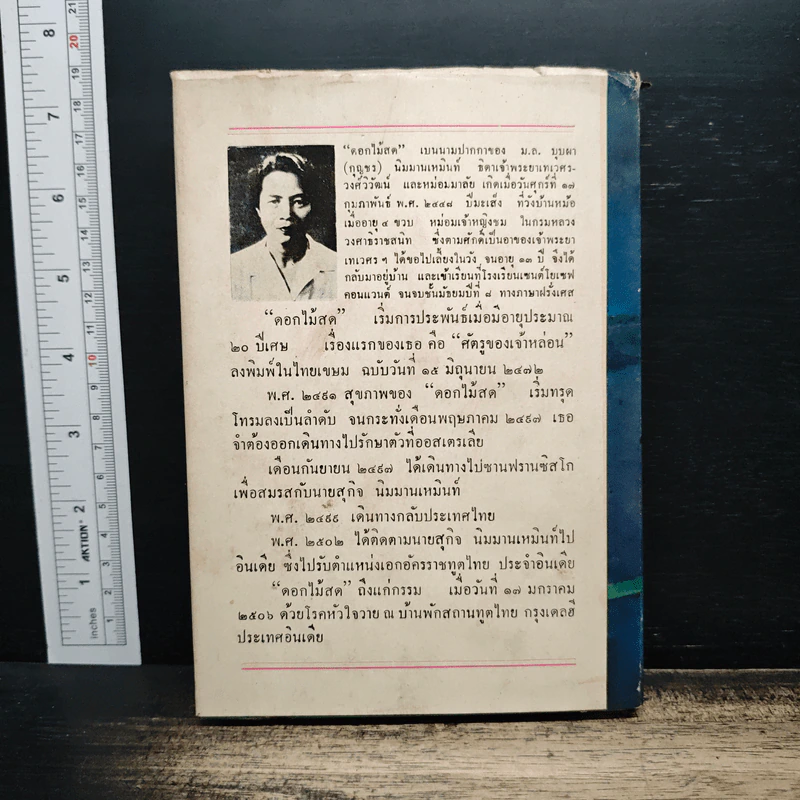 "ดอกไม้สด" เป็นนามปากกาของ ม.ล. บุบผา
(กุญชร) นิมมานเหมินท์ ธิดาเจ้าพระยาเทเวศร-
วงศ์วิวัฒน์ และหม่อมมาลัย เกิดเมื่อวันศุกร์ที่ ๑๗
กุมภาพันธ์ พ.ศ. ๒๔๔๘ ปีมะเส็ง ที่วังบ้านหม้อ
เมื่ออายุ ๔ ขวบ หม่อมเจ้าหญิงชม ในกรมหลวง
วงศาธิราชสนิท ซึ่งตามศักดิ์เป็นอาของเจ้าพระยา
เทเวศร ฯ ได้ขอไปเลี้ยงในวัง จนอายุ ๑๓ ปี จึงได้
กลับมาอยู่บ้าน และเข้าเรียนที่โรงเรียนเซนต์โยเซฟ
คอนแวนต์ จนจบชั้นมัธยมปีที่ ๘ ทางภาษาฝรั่งเศส
"ดอกไม้สด" เริ่มการประพันธ์เมื่อมีอายุประมาณ
๒๐ ปีเศษ เรื่องแรกของเธอ คือ "ศัตรูของเจ้าหล่อน"
ลงพิมพ์ในไทยเขษม ฉบับวันที่ ๑๕ มิถุนายน ๒๔๗๒
พ.ศ. ๒๔๙๑ สุขภาพของ "ดอกไม้สด" เริ่มทรุด
โทรมลงเป็นลำดับ จนกระทั่งเดือนพฤษภาคม ๒๔๙๗ เธอ
จำต้องออกเดินทางไปรักษาตัวที่ออสเตรเลีย
เดือนกันยายน ๒๔๙๗ ได้เดินทางไปซานฟรานซิสโก
เพื่อสมรสกับนายสุกิจ นิมมานเหมินท์
พ.ศ. ๒๔๙๙ เดินทางกลับประเทศไทย
พ.ศ. ๒๕๐๒ ได้ติดตามนายสุกิจ นิมมานเหมินท์ไป
อินเดีย ซึ่งไปรับตำแหน่งเอกอัครราชทูตไทย ประจำอินเดีย
"ดอกไม้สด" ถึงแก่กรรม เมื่อวันที่ ๑๗ มกราคม
๒๕๐๖ ด้วยโรคหัวใจวาย ณ บ้านพักสถานทูตไทย กรุงเดลฮี
ประเทศอินเดีย
8
7
6
5
4
3
2
1
inches
AKTION
21
20
19
18
17
16
15
14
13
12
11
10
9
8
7
6
5
4
3
2
1